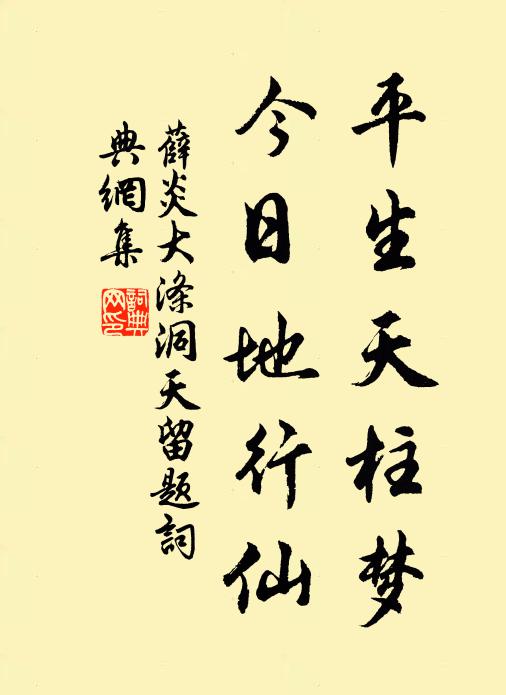 平生天柱梦
今日地行仙
薛炎大涤洞天留题詞
典網集
詞典
网印